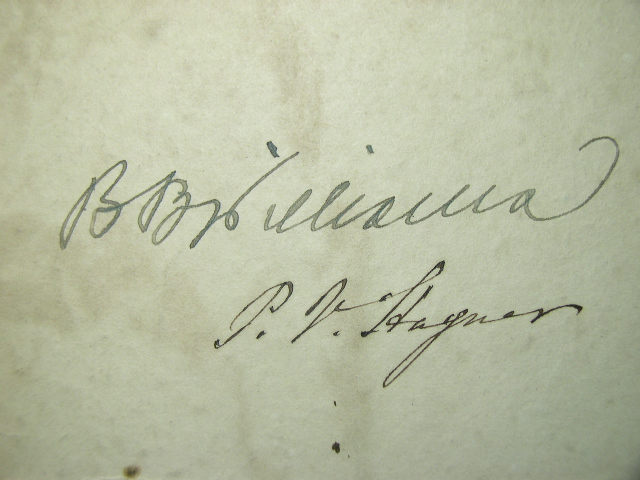 B B Williams
P. V. Hagner